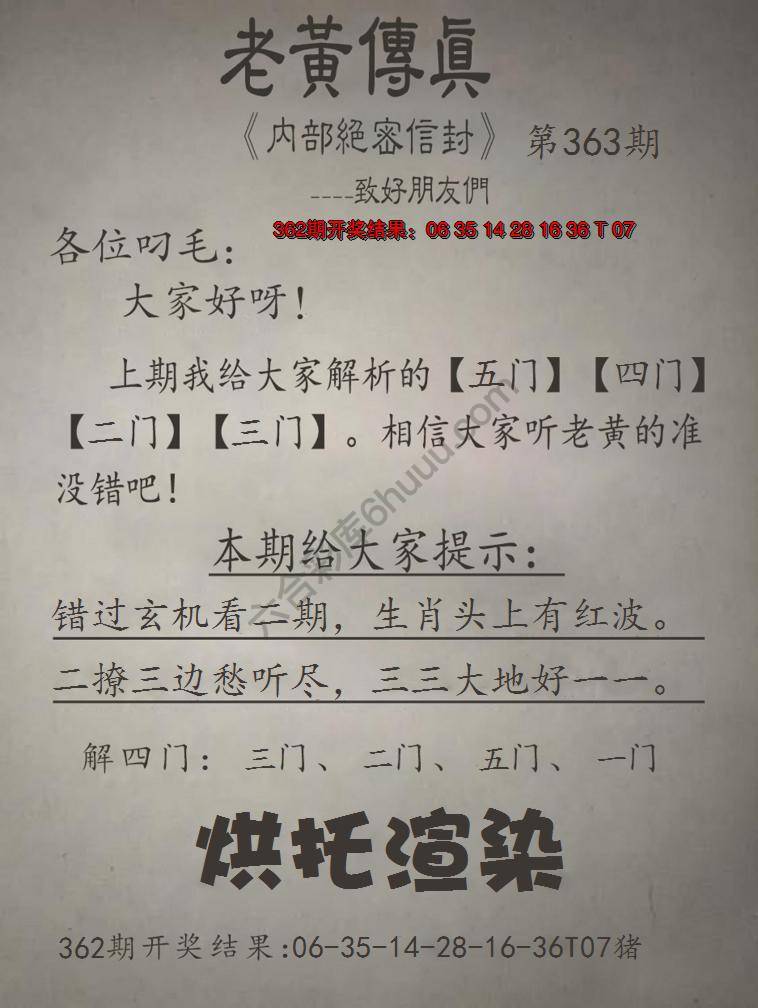 老黃傳眞
《内部絕密信封》 第363期
----致好朋友們
362期开奖结果：06 35 14 28 16 36 T 07
各位叼毛：
大家好呀！
上期我给大家解析的【五门】【四门】
【二门】【三门】。相信大家听老黄的准
没错吧！
本期给大家提示：
错过玄机看二期，生肖头上有红波。
二撩三边愁听尽，三三大地好一一。
解四门：三门、二门、五门、一门
烘托渲染
362期开奖结果:06-35-14-28-16-36T07猪
六合彩库6huuu.com